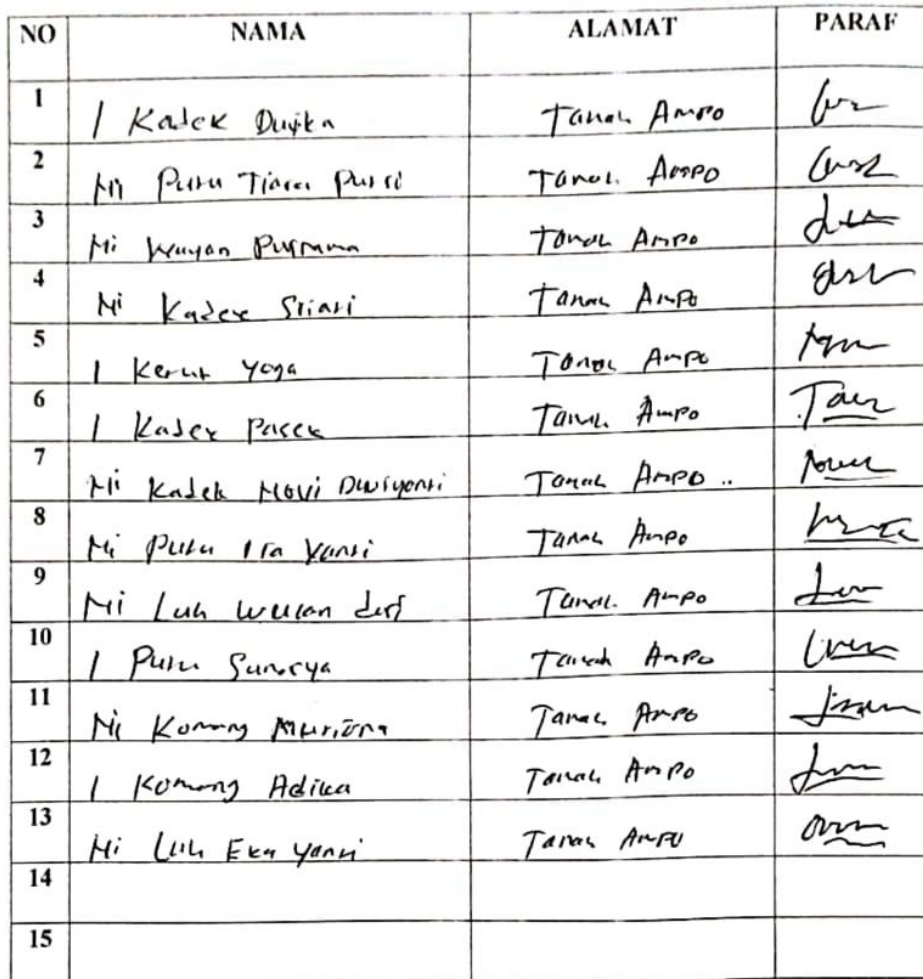 NO NAMA ALAMAT PARAF
1 I Kadek Dwika Tanah Ampo
2 Ni Putu Tiara Putri Tanah Ampo
3 Ni Wayan Purnama Tanah Ampo
4 Ni Kadek Sriari Tanah Ampo
5 I Ketut Yoga Tanah Ampo
6 I Kadek Pasek Tanah Ampo
7 Ni Kadek Novi Dwiyanti Tanah Ampo ..
8 Ni Putu Ira Yanti Tanah Ampo
9 Ni Luh Wulan Tanah Ampo
10 I Putu Tanah Ampo
11 Ni Komang Tanah Ampo
12 I Komang Adika Tanah Ampo
13 Ni Luh Eka Yanti Tanah Ampo
14
15